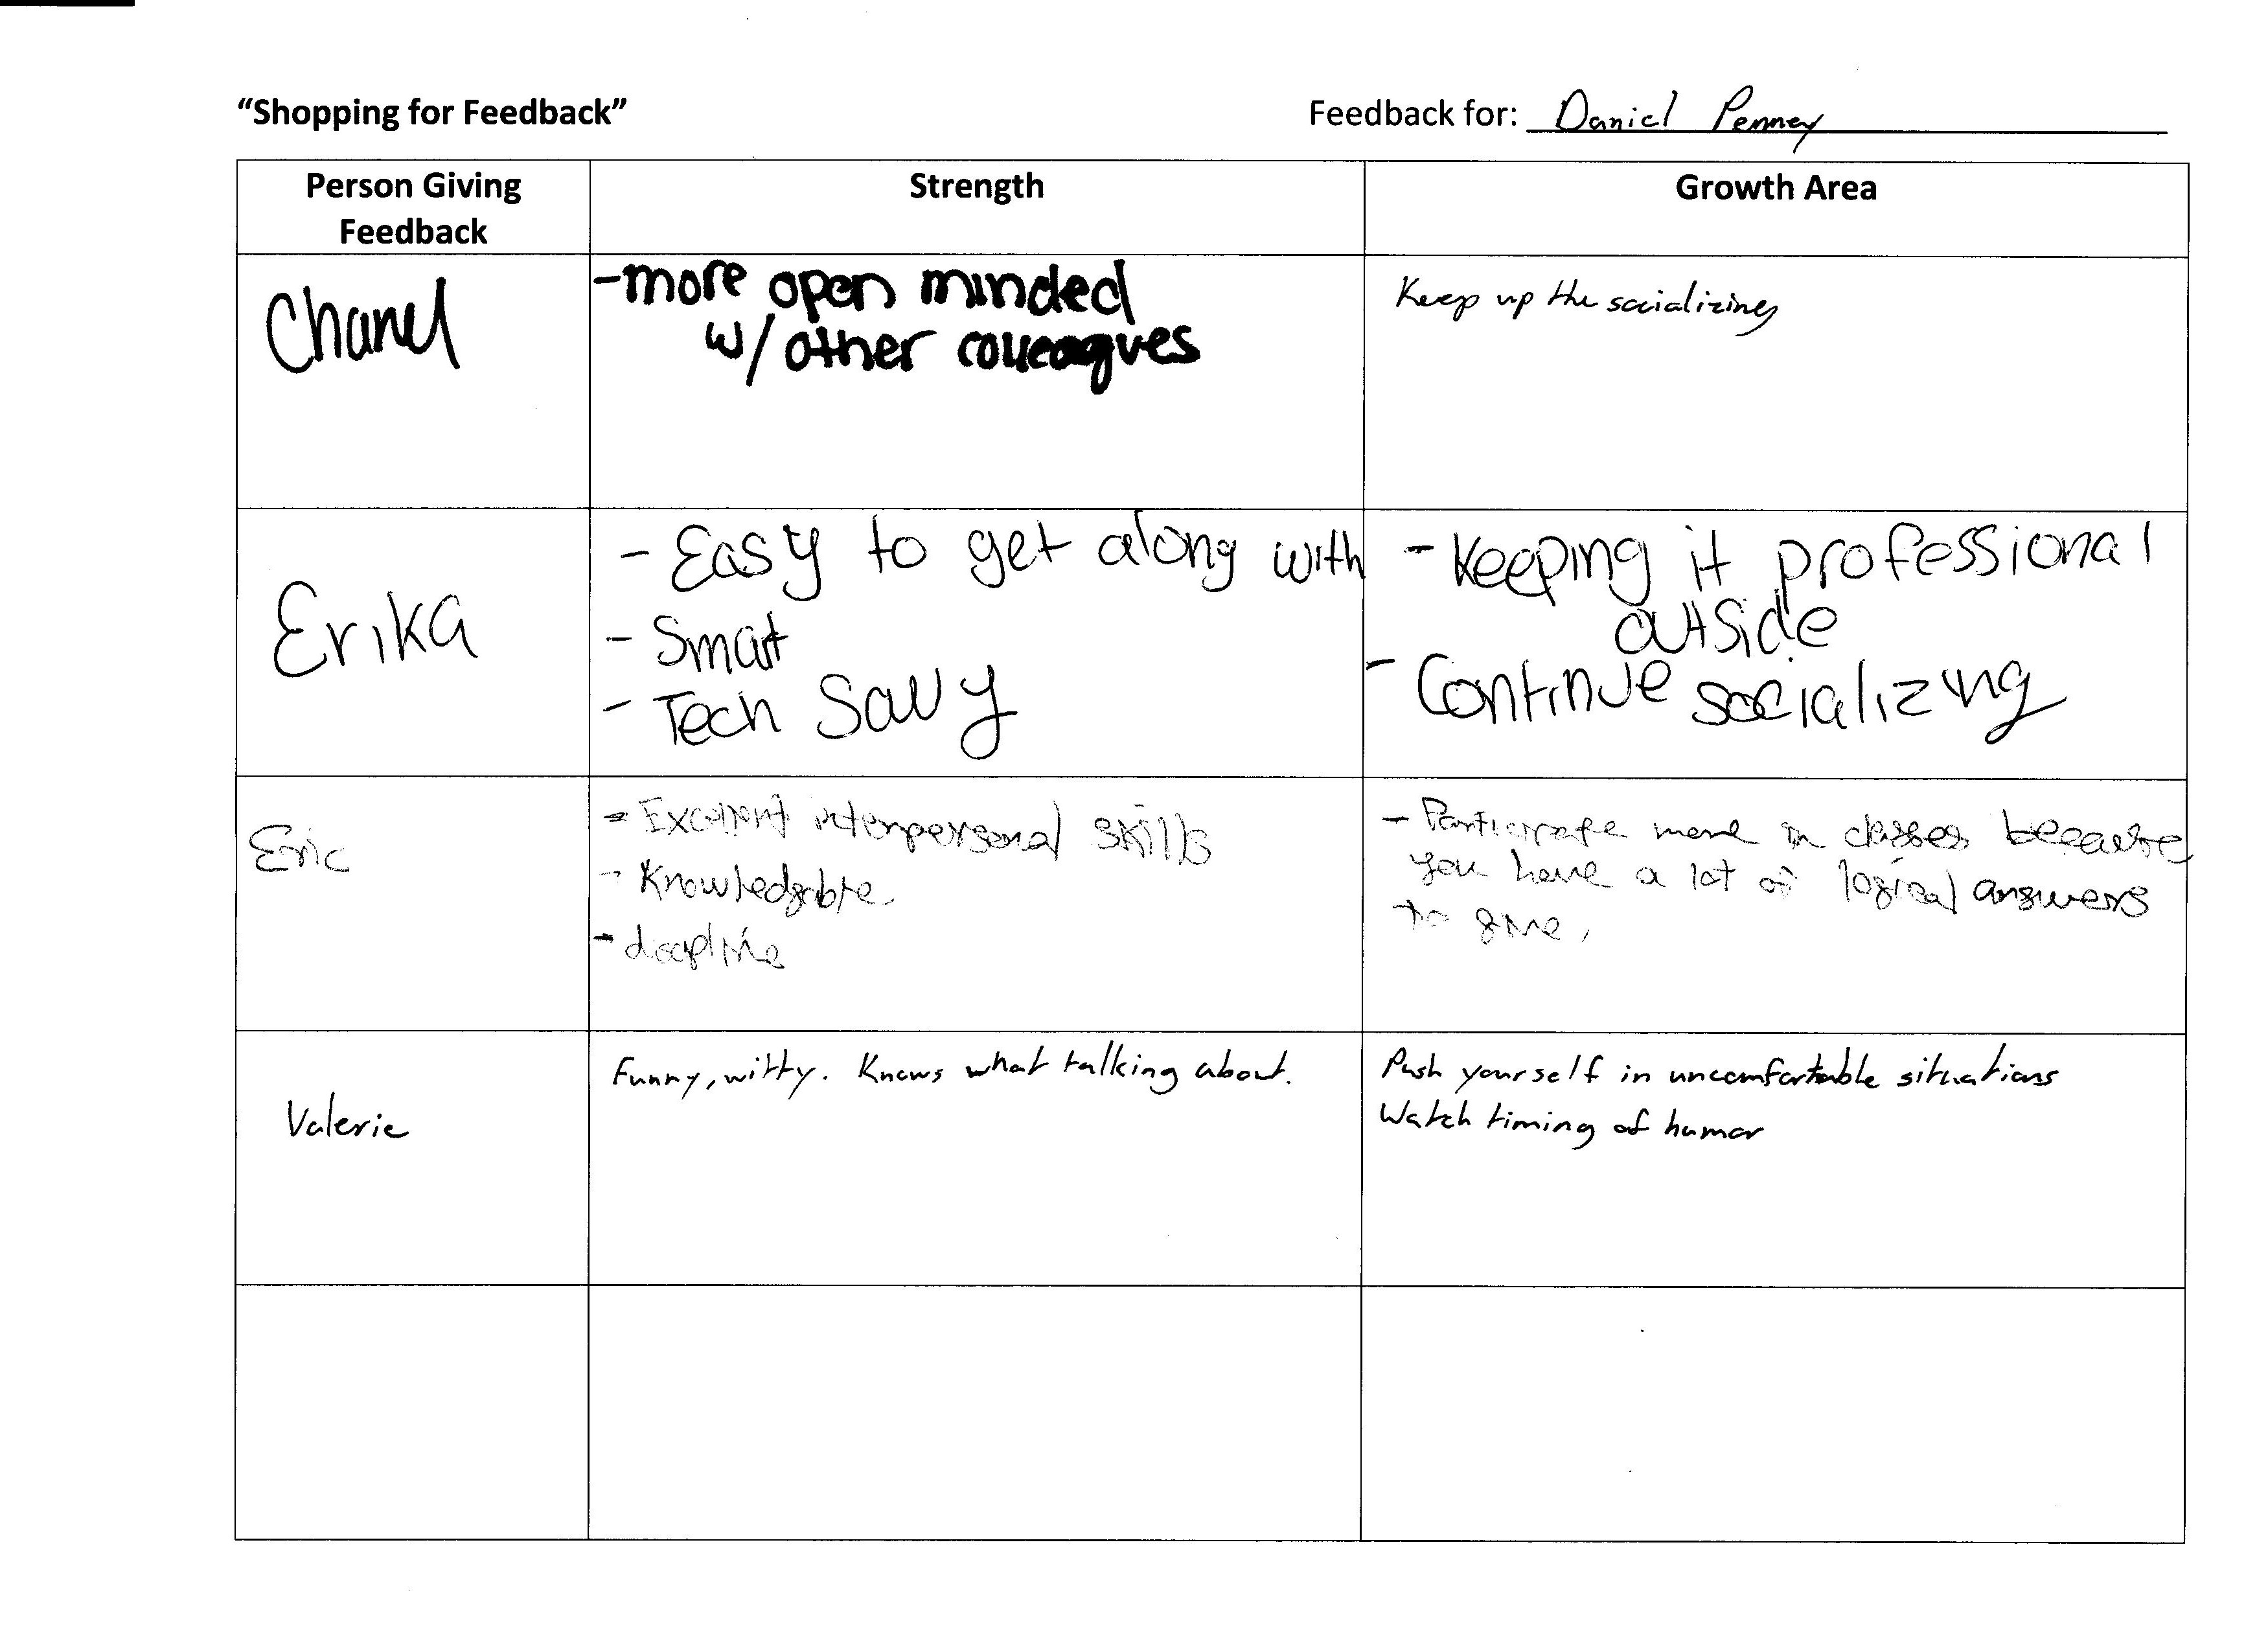 "Shopping for Feedback"
Feedback for: Daniel Penney
Person Giving
Feedback
Strength
Growth Area
Chanel
-more open minded
w/ other colleagues
Keep up the socializing
Erika
- Easy to get along with
- Smart
- Tech Savvy
- Keeping it professional
outside
- Continue socializing
Eric
- Excellent interpersonal skills
- Knowledgable
- discipline
- Participate more in classes because
you have a lot of logical answers
to give.
Valerie
Funny, witty. Knows what talking about.
Push yourself in uncomfortable situations
Watch timing of humor